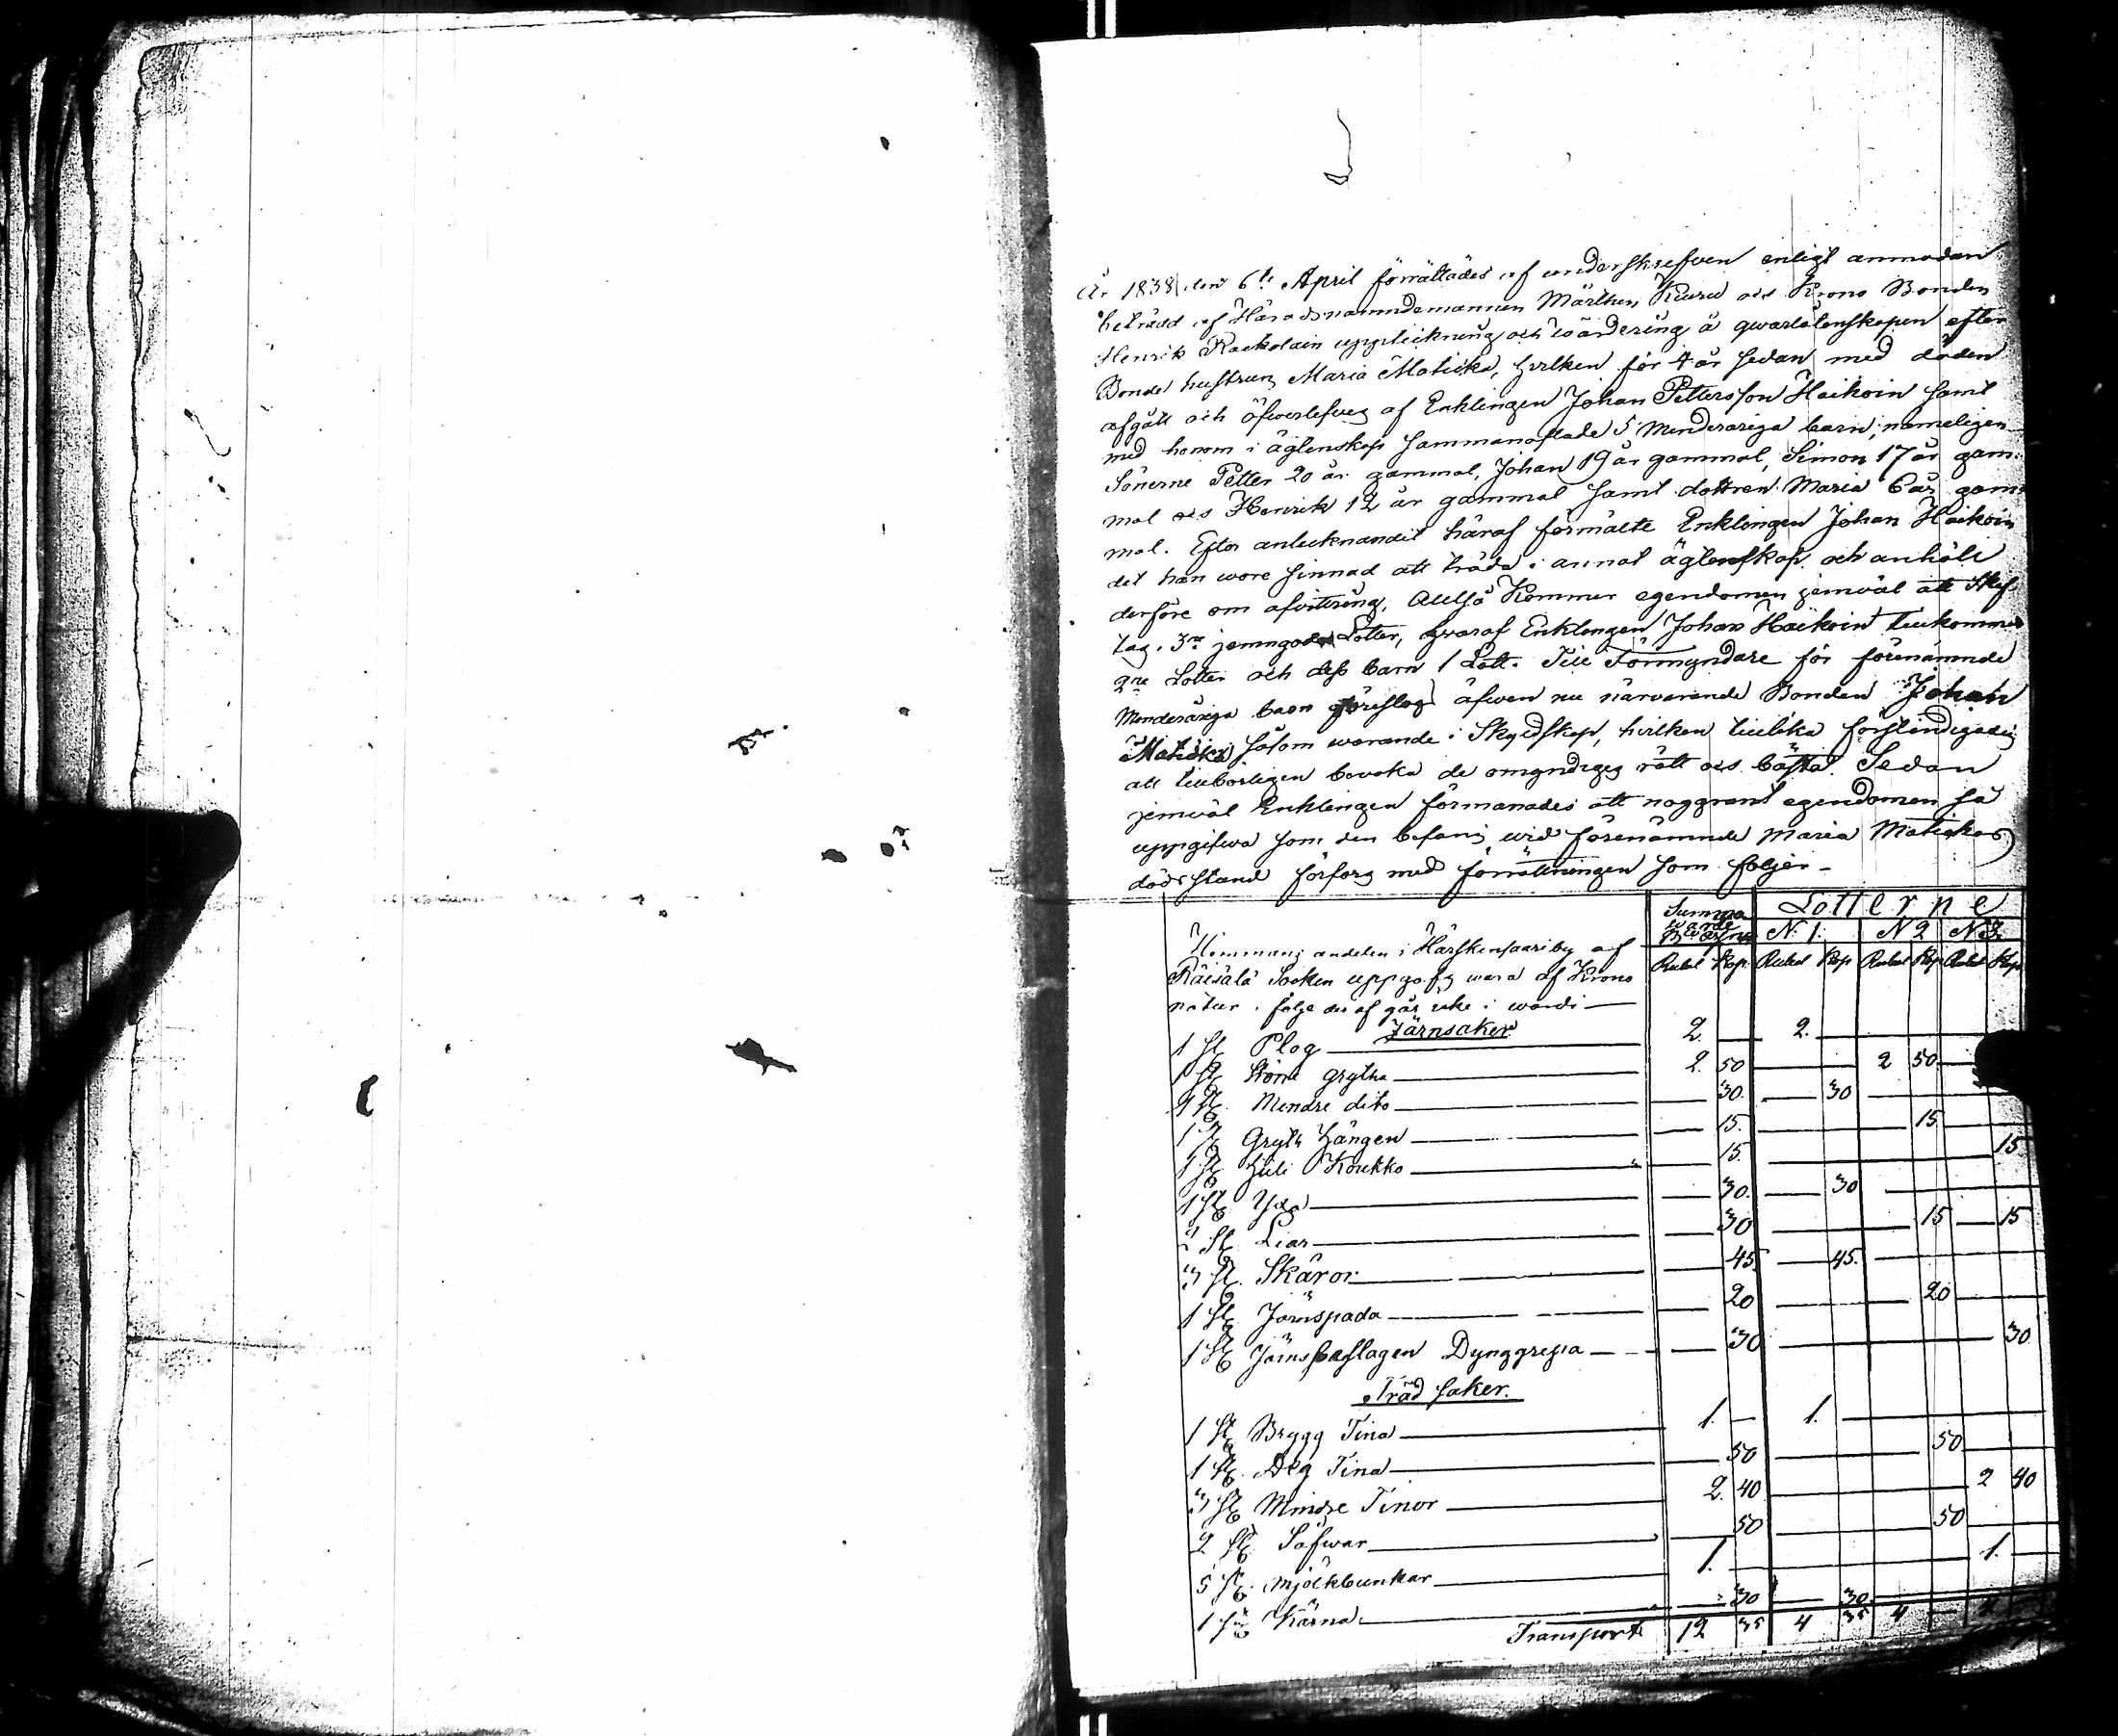 År 1838 den 6te April förrättades af underskrefven enligt anmodan
beträdd af Häradsnämndemannen Mårthen Kuru och Krono Bonden
Henrik Kaekolain uppteckning och wärdering å qwarlåtenskapen efter
Bonde hustrun Maria Maticka, hvilken för 4 år sedan med döden
afgått och öfwerlefves af Enklingen Johan Pettersson Haikoin samt
med honom i ägtenskap sammanaflade 5 Menderåriga barn, nemeligen
Sönerne Petter 20 år gammal, Johan 19 år gammal, Simon 17 år gam-
mal och Henrik 12 år gammal samt dottren Maria 6 år gam-
mal. Efter antecknandet häraf förmälte Enklingen Johan Haikoin
det han wore sinnad att träda i annat ägtenskap och anhölt
derföre om afwitering, Alltså Kommer egendomen jemväl att Skif-
tas i 3ne jemngoda Lotter, hvaraf Enklingen Johan Haikoin tillkommer
2ne Lotter och dess barn 1 Lott. Till Förmyndare för förenämnde
Menderåriga barn föreslogs äfwen nu närwarande Bonden Johan
Maticka såsom warande i Skyldskap, hvilken tillika förständigades
att tillbörligen bevaka de omyndiges rätt och bästa. Sedan
jemväl Enklingen förmanades att noggrant egendomen så
uppgifwa som den befans wid förenämnde Maria Matickas
döds stand förfors med förrättningen som följer -
Summa wärde Lotterne
N: 1. N 2 N 3
Hemmans andelen i Härskensaari by af Rubel Kop. Rubel Kop Rubel Kop Rubel Kop
Räisälä Socken uppgafs wara af Krono
natur i följe der af går icke i wärde
Järnsaker
1 St Plog 2. 2.
1 St Större grytha 2. 50 2 50
1 St. Mendre dito 30. 30
1 St Gryth Hängen 15. 15
1 St Hili Koukko 15. 15
1 St Yxa 30. 30
2 St Liar 30 15 15
3 St. Skäror 45. 45.
1 St. Järnspada 20 20
1 St Järnsbeslagen Dynggrepa 30 30
Träd saker.
1 St Brygg Tina 1. 1.
1 St. Deg Tina 50 50
3 St Mindre Tinor 2. 40 2 40
2 St. Såfwar 50 50
5 St. Mjölkbunkar 1. 1.
1 St Kärna 30 30
Transport 12 35 4 35 4 4